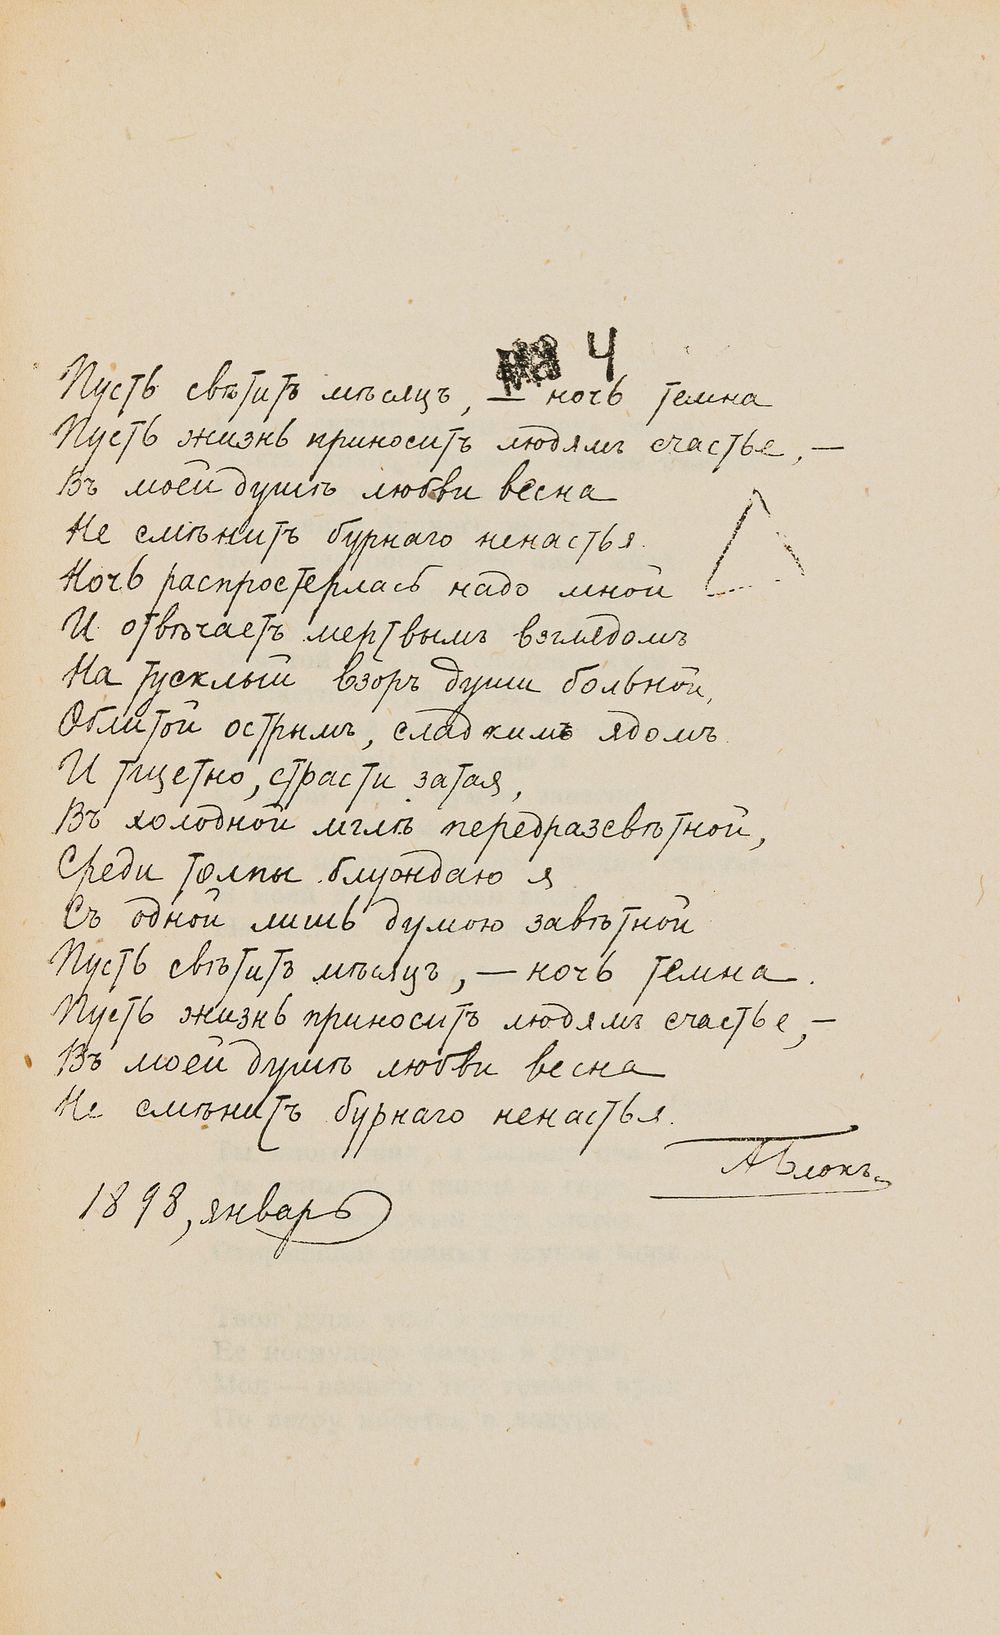 4
Пусть свѣтитъ мѣсяцъ, — ночь темна
Пусть жизнь приноситъ людямъ счастье, —
Въ моей душѣ любви весна
Не смѣнитъ бурнаго ненастья.
Ночь распростерлась надо мной
И отвѣчаетъ мертвымъ взглядомъ
На тусклый взоръ души больной,
Облитой острымъ, сладкимъ ядомъ.
И тщетно, страсти затая,
Въ холодной мглѣ передразсвѣтной,
Среди толпы блуждаю я
Съ одной лишь думою завѣтной
Пусть свѣтитъ мѣсяцъ, — ночь темна.
Пусть жизнь приноситъ людямъ счастье, —
Въ моей душѣ любви весна
Не смѣнитъ бурнаго ненастья.
АБлокъ.
1898, январь